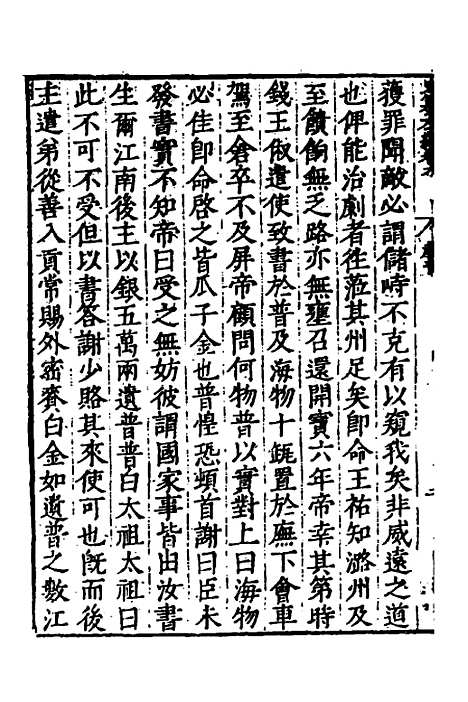 獲罪聞敵必謂儲峙不克有以窺我矣非威遠之道
也俾能治劇者往蒞其州足矣即命王祐知潞州及
至饋餉無乏路亦無壅召還開寶六年帝幸其第時
錢王俶遣使致書於普及海物十㼽置於廡下會車
駕至倉卒不及屏帝顧問何物普以實對上曰海物
必佳即命啓之皆瓜子金也普惶恐頓首謝曰臣未
發書實不知帝曰受之無妨彼謂國家事皆由汝書
生爾江南後主以銀五萬兩遺普普白太祖太祖曰
此不可不受但以書答謝少賂其來使可也旣而後
主遣弟從善入貢常賜外密賚白金如遺普之數江